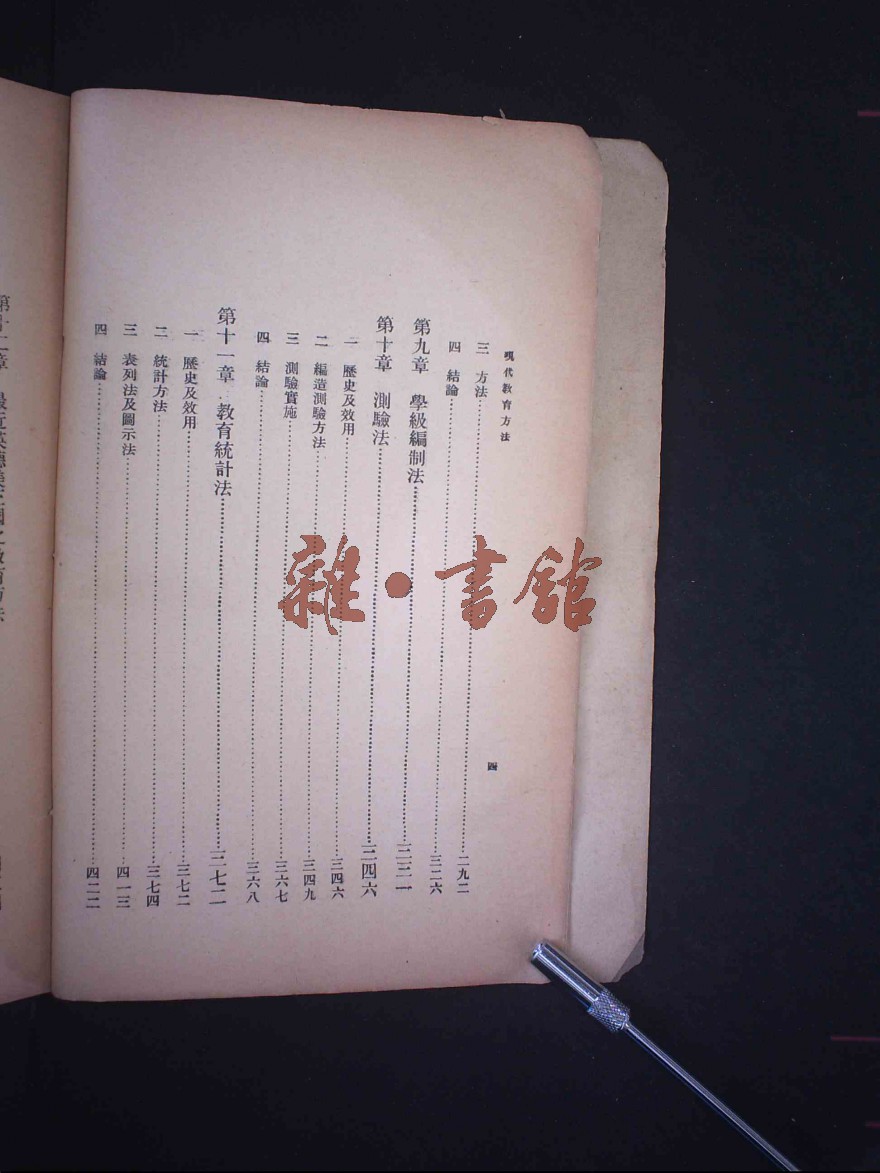 現代教育方法
四
三 方法⋯⋯二九二
四 結論⋯⋯三二六
第九章 學級編制法
第十章 測驗法⋯⋯三四六
一 歷史及效用⋯⋯三四六
二 編造測驗方法⋯⋯三四九
三 測驗實施⋯⋯三六七
四 結論⋯⋯三六八
第十一章 教育統計法⋯⋯三七二
一 歷史及效用⋯⋯三七二
二 統計方法⋯⋯三七四
三 表列法及圖示法⋯⋯四一三
四 結論⋯⋯四二二
雜·書館